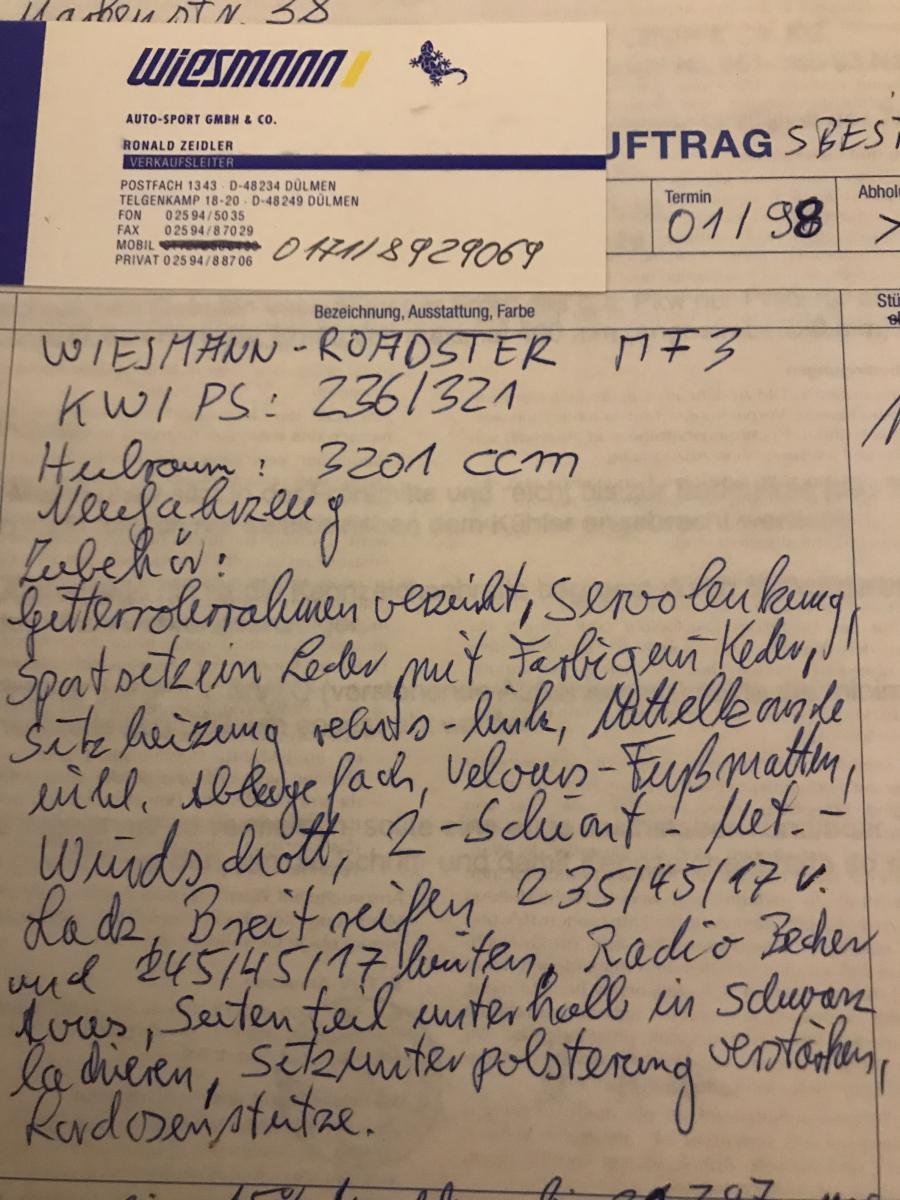 Wiesmann
AUTO-SPORT GMBH & CO.
RONALD ZEIDLER
VERKAUFSLEITER
POSTFACH 1343 · D-48234 DÜLMEN
TELGENKAMP 18-20 · D-48249 DÜLMEN
FON 02594/5035
FAX 02594/87029
MOBIL 0171/8929069
PRIVAT 02594/88706
UFTRAG SBEST
Termin
01/98
Abhol
Bezeichnung, Ausstattung, Farbe
Stü
WIESMANN-ROADSTER MF3
KW/PS: 236/321
Hubraum: 3201 ccm
Neufahrzeug
Zubehör:
Gitterrohrrahmen verzinkt, Servolenkung,
Sportsitze in Leder mit Farbigem Keder,
Sitzheizung rechts-link, Mittelkonsole
inkl. Ablagefach, Velours-Fußmatten,
Windschott, 2-Schicht-Met.-
Lack, Breitreifen 235/45/17 v.
und 245/45/17 hinten, Radio Becker
Seitenteil unterhalb in Schwarz
lackieren, Sitzunterpolsterung verstärken,
Lordosenstütze.